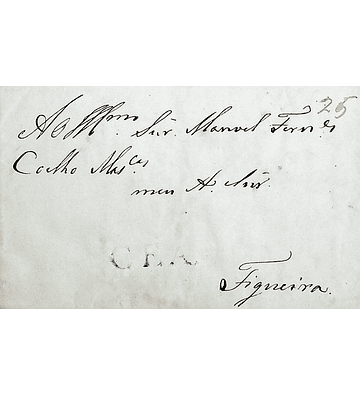 25
Ao Illmo. Snr. Manoel Fern.des
Coelho Mas.ces
meu A. Snr.
CEA
Figueira.